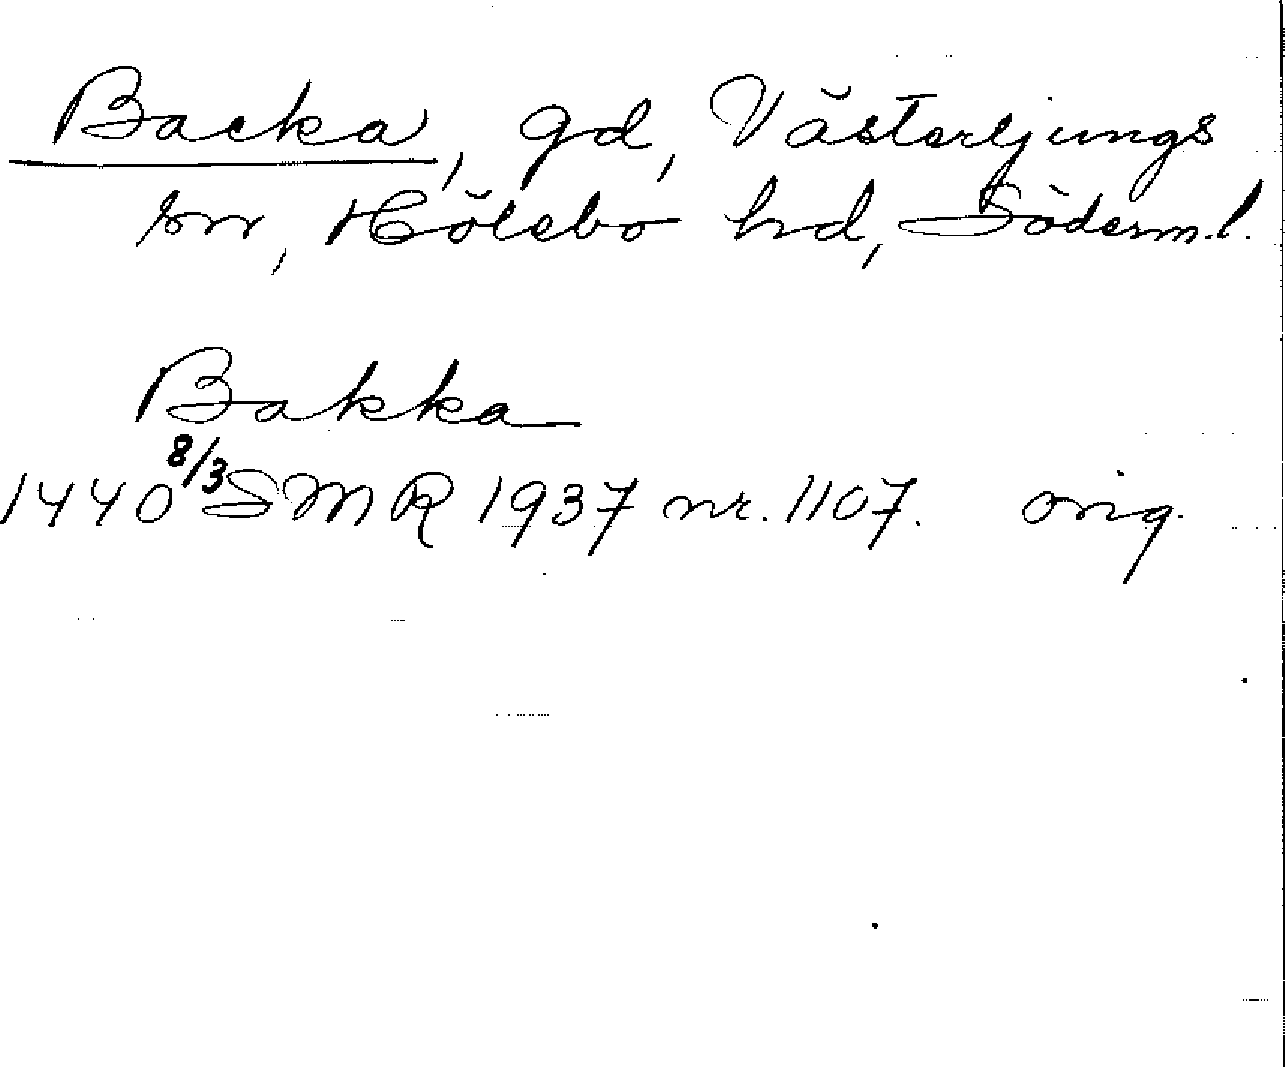 Backa, gd, Västerljungs
sn, Hölebo hd, Söderm.l.
Bakka
1440 8/3 SMR 1937 nr. 1107. orig.